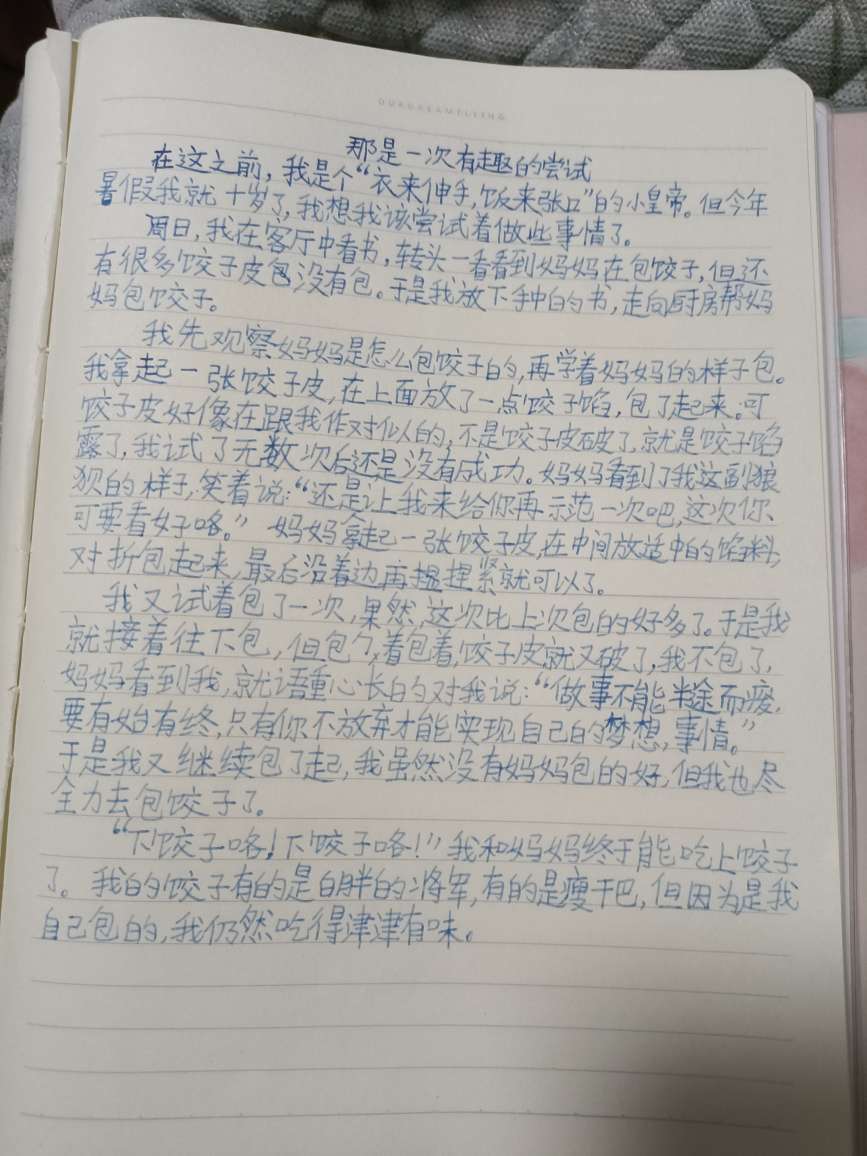 那是一次有趣的尝试
在这之前，我是个“衣来伸手，饭来张口”的小皇帝。但今年
暑假我就十岁了，我想我该尝试着做些事情了。
周日，我在客厅中看书，转头一看看到妈妈在包饺子，但还
有很多饺子皮包没有包。于是我放下手中的书，走向厨房帮妈
妈包饺子。
我先观察妈妈是怎么包饺子的，再学着妈妈的样子包。
我拿起一张饺子皮，在上面放了一点饺子馅，包了起来。可
饺子皮好像在跟我作对似的，不是饺子皮破了，就是饺子馅
露了，我试了无数次后还是没有成功。妈妈看到了我这副狼
狈的样子，笑着说：“还是让我来给你再示范一次吧，这次你
可要看好咯。”妈妈拿起一张饺子皮，在中间放适中的馅料，
对折包起来，最后沿着边再捏紧就可以了。
我又试着包了一次，果然，这次比上次包的好多了。于是我
就接着往下包，但包了，着包着，饺子皮就又破了，我不包了，
妈妈看到我，就语重心长的对我说：“做事不能半途而废，
要有始有终，只有你不放弃才能实现自己的梦想，事情。”
于是我又继续包了起，我虽然没有妈妈包的好，但我也尽
全力去包饺子了。
“下饺子咯！下饺子咯！”我和妈妈终于能吃上饺子
了。我的饺子有的是白胖的将军，有的是瘦干巴，但因为是我
自己包的，我仍然吃得津津有味。